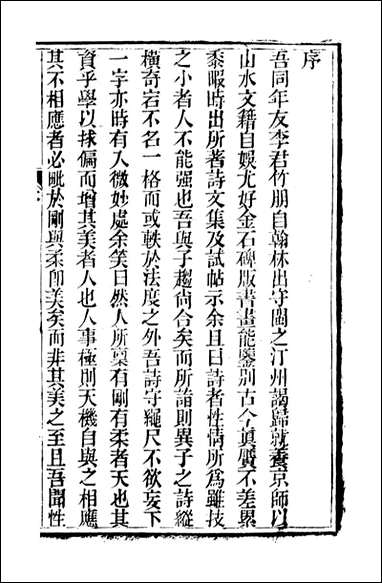 序
吾同年友李君竹朋自翰林出守閩之汀州謁歸就養京師以
山水文籍自娛尤好金石碑版書畫能鑒別古今真贋不差累
黍暇時出所著詩文集及試帖示余且曰詩者性情所爲雖技
之小者人不能強也吾與子趨尚合矣而所詣則異子之詩縱
橫奇宕不名一格而或軼於法度之外吾詩守繩尺不欲妄下
一字亦時有入微妙處余笑曰然人所稟有剛有柔者天也其
資乎學以捄偏而增其美者人也人事極則天機自與之相應
其不相應者必毗於剛與柔卽美矣而非其美之至且吾聞性